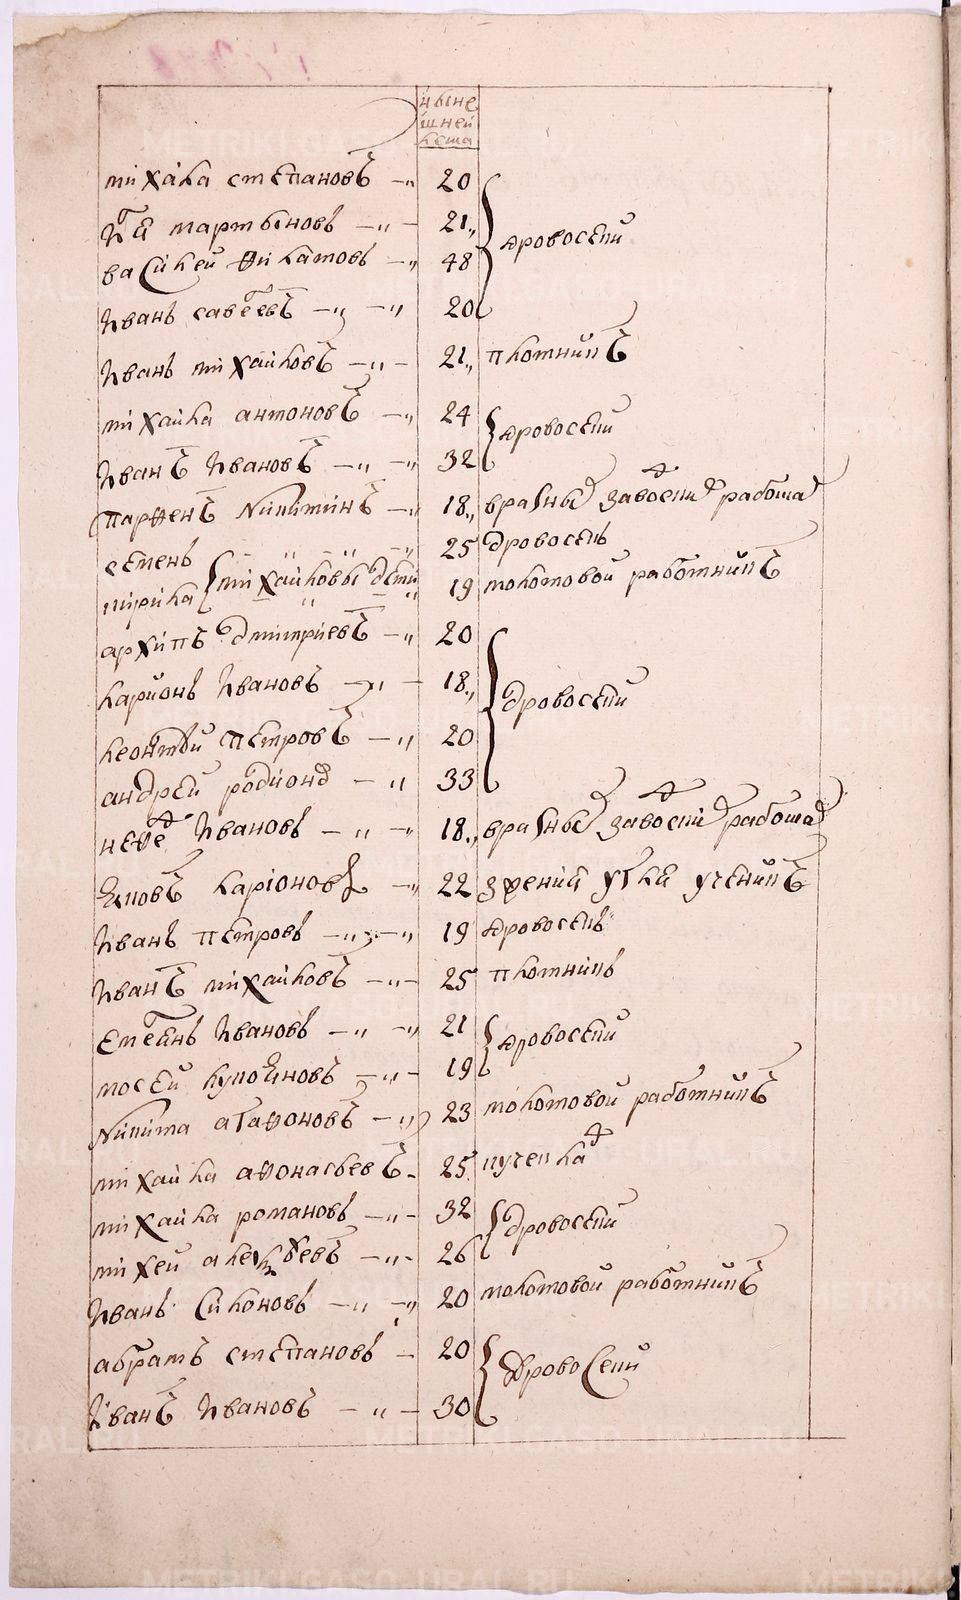 ныне
шней
лета
михаила степановъ 20
Илья мартыновъ 21 дровосеки
василей филатовъ 48
Иванъ савельевъ 20
Иванъ михайловъ 21 плотникъ
михайла антоновъ 24 дровосеки
Иванъ Ивановъ 32
парфенъ Никитинъ 18 вразныхъ заводских работах
семенъ 25 дровосекъ
михайловы дети 19 молотовой работникъ
архипъ дмитриевъ 20
ларионъ Ивановъ 18 дровосеки
леонтей петровъ 20
андрей родионов 33
нефед Ивановъ 18 вразных заводских работах
Яковъ ларионовъ 22 ученикъ
Иванъ петровъ 19 дровосекъ
Иванъ михайловъ 25 плотникъ
Степанъ Ивановъ 21 дровосеки
мосей лукояновъ 19
Никита агафоновъ 23 молотовой работникъ
михайла афонасьевъ 25
михайла романовъ 32 дровосеки
михей алексеевъ 26
Иванъ Силоновъ 20 молотовой работникъ
абрамъ степановъ 20 дровосеки
Иванъ Ивановъ 30
METRIKI.GASO-URAL.RU